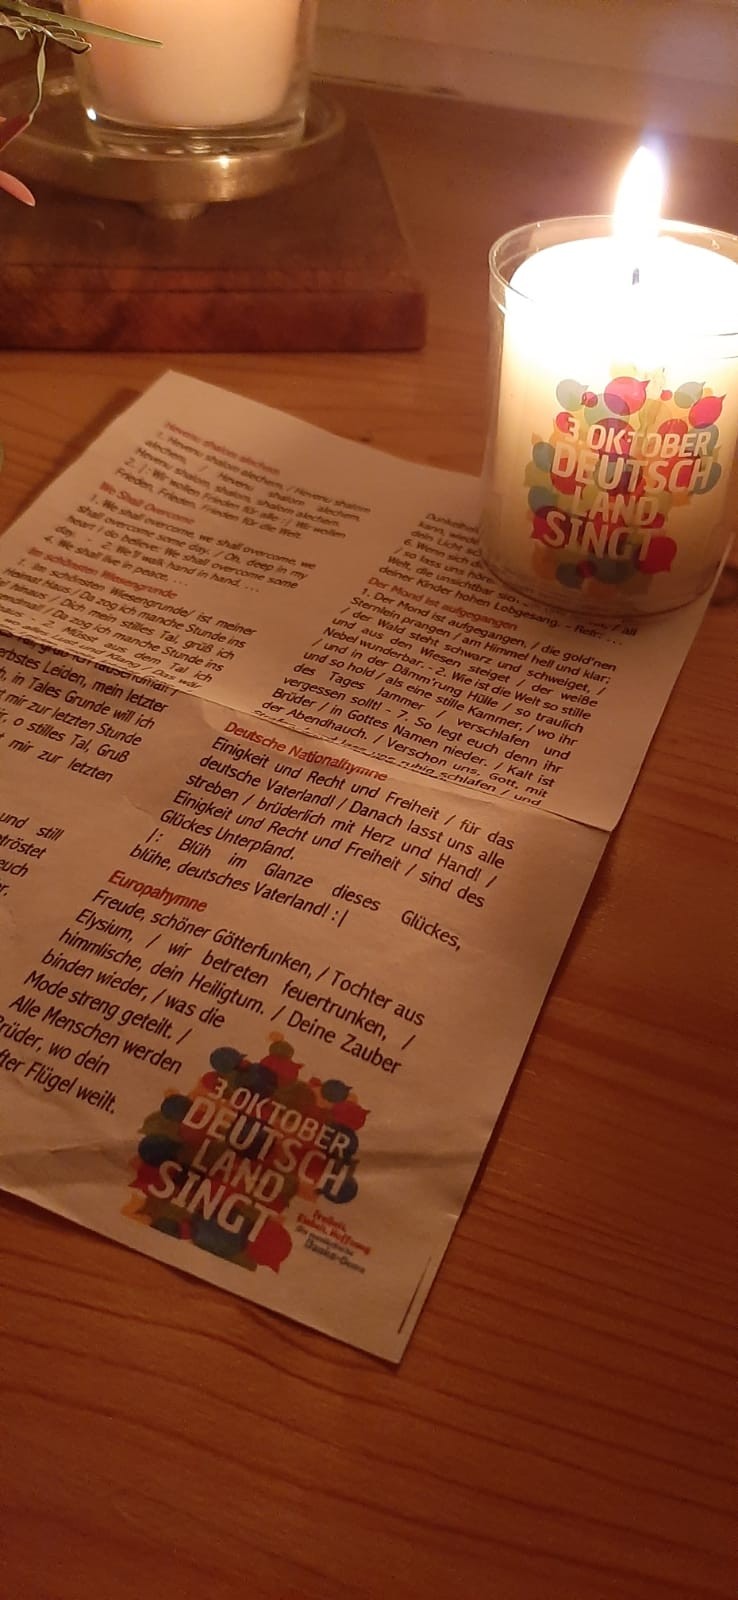 3. OKTOBER
DEUTSCH
LAND
SINGT
Hevenu shalom alechem
1. Hevenu shalom alechem, / Hevenu shalom
alechem, / Hevenu shalom alechem,
Hevenu shalom, shalom, shalom alechem.
2. |: Wir wollen Frieden für alle :| Wir wollen
Frieden, Frieden, Frieden für die Welt.
We Shall Overcome
1. We shall overcome, we shall overcome, we
shall overcome some day. / Oh, deep in my
heart I do believe: We shall overcome some
day. - 2. We'll walk hand in hand. ...
4. We shall live in peace. ...
Im schönsten Wiesengrunde
1. Im schönsten Wiesengrunde/ ist meiner
Heimat Haus / Da zog ich manche Stunde ins
hinaus / Dich mein stilles Tal, grüß ich
/ Da zog ich manche Stunde ins
2. Müsst aus dem Tal ich
erbstes Leiden, mein letzter
in Tales Grunde will ich
mir zur letzten Stunde
o stilles Tal, Gruß
mir zur letzten
und still
euch
Dunkelheit
kann, wieder
dein Licht
6. Wenn sich
/ so lass uns hören
Welt, die unsichtbar sich / all
deiner Kinder hohen Lobgesang. - Refr.: ...
Der Mond ist aufgegangen
1. Der Mond ist aufgegangen, / die gold'nen
Sternlein prangen / am Himmel hell und klar;
/ der Wald steht schwarz und schweiget, /
und aus den Wiesen steiget / der weiße
Nebel wunderbar. - 2. Wie ist die Welt so stille
/ und in der Dämm'rung Hülle / so traulich
und so hold / als eine stille Kammer, / wo ihr
des Tages Jammer / verschlafen und
vergessen sollt! - 7. So legt euch denn ihr
Brüder / in Gottes Namen nieder. / Kalt ist
der Abendhauch. / Verschon uns, Gott, mit
lass uns ruhig schlafen / und
Deutsche Nationalhymne
Einigkeit und Recht und Freiheit / für das
deutsche Vaterland! / Danach lasst uns alle
streben / brüderlich mit Herz und Hand! /
Einigkeit und Recht und Freiheit / sind des
Glückes Unterpfand.
|: Blüh im Glanze dieses Glückes,
blühe, deutsches Vaterland! :|
Europahymne
Freude, schöner Götterfunken, / Tochter aus
Elysium, / wir betreten feuertrunken, /
himmlische, dein Heiligtum. / Deine Zauber
binden wieder, / was die
Mode streng geteilt. /
Alle Menschen werden
Brüder, wo dein
fter Flügel weilt.
3. OKTOBER
DEUTSCH
LAND
SINGT
Freiheit,
Einheit, Hoffnung
die musikalische
Danke-Demo